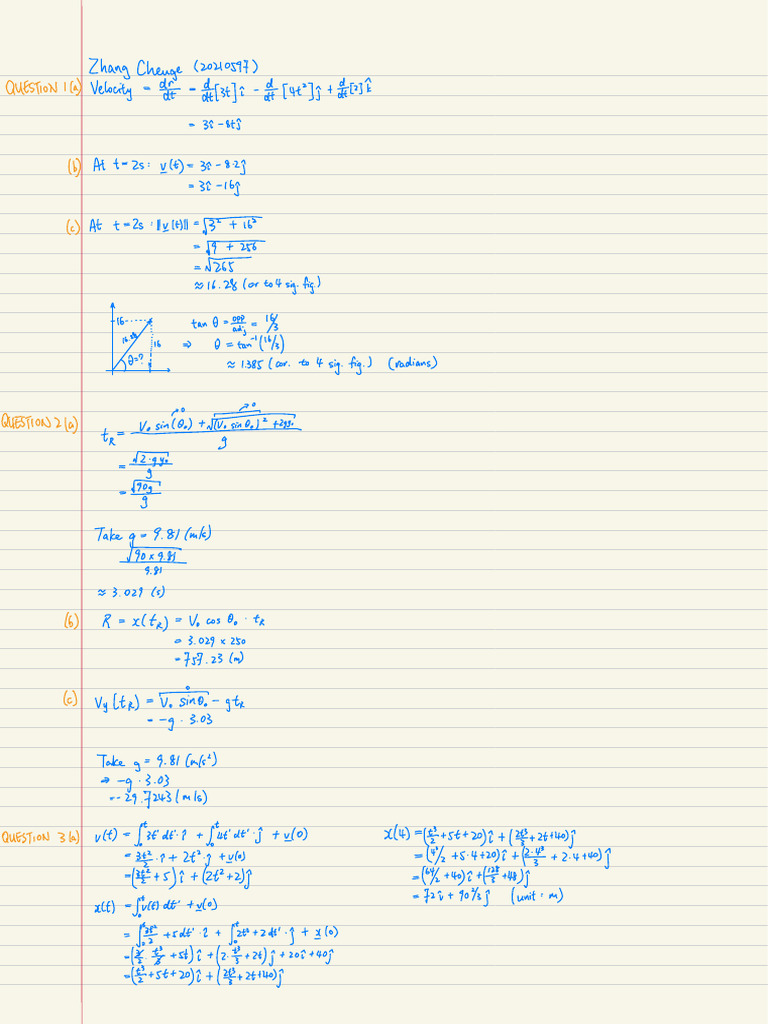 Zhang Chenge (20210597)
QUESTION 1(a) Velocity = dr/dt = d/dt[3t]î − d/dt[4t²]ĵ + d/dt[2]k̂
= 3î−8tĵ
(b) At t=2s: v(t) = 3î−8·2ĵ
= 3î−16ĵ
(c) At t=2s: ||v(t)|| = √(3² + 16²)
= √(9 + 256)
= √265
≈16.28 (or to 4 sig. fig)
16 16.28 16 θ=?
tan θ = opp/adj = 16/3
⇒ θ = tan⁻¹(16/3)
≈ 1.385 (cor. to 4 sig. fig.) (radians)
QUESTION 2(a) t_R = (V₀ sin(θ₀)→0 + √((V₀ sin θ₀)² + 2gy₀)→0)/g
= √(2·g y₀)/g
= √(90g)/g
Take g = 9.81 (m/s)
√(90×9.81)/9.81
≈ 3.029 (s)
(b) R = x(t_R) = V₀ cos θ₀ · t_R
= 3.029 × 250
= 757.23 (m)
(c) V_y(t_R) = V₀ sinθ₀ − gt_R
0
= −g · 3.03
Take g = 9.81 (m/s²)
⇒ −g · 3.03
= −29.7243 (m/s)
QUESTION 3(a) v(t) = ∫₀ᵗ 3t' dt'·î + ∫₀ᵗ 4t' dt'·ĵ + v(0)
= 3t²/2·î + 2t²·ĵ + v(0)
= (3t²/2 + 5)î + (2t²+2)ĵ
x(t) = ∫₀ᵗ v(t) dt' + v(0)
= ∫₀ᵗ 3t²/2 + 5 dt'·î + ∫₀ᵗ 2t²+2 dt'·ĵ + x(0)
= (3/2·t³/3 + 5t)î + (2·t³/3 + 2t)ĵ + 20î + 40ĵ
= (t³/2 + 5t + 20)î + (2t³/3 + 2t + 40)ĵ
x(4) = (t³/2 + 5t + 20)î + (2t³/3 + 2t + 40)ĵ
= (4³/2 + 5·4 + 20)î + (2·4³/3 + 2·4 + 40)ĵ
= (64/2 + 40)î + (128/3 + 48)ĵ
= 72î + 90 2/3 ĵ (unit: m)